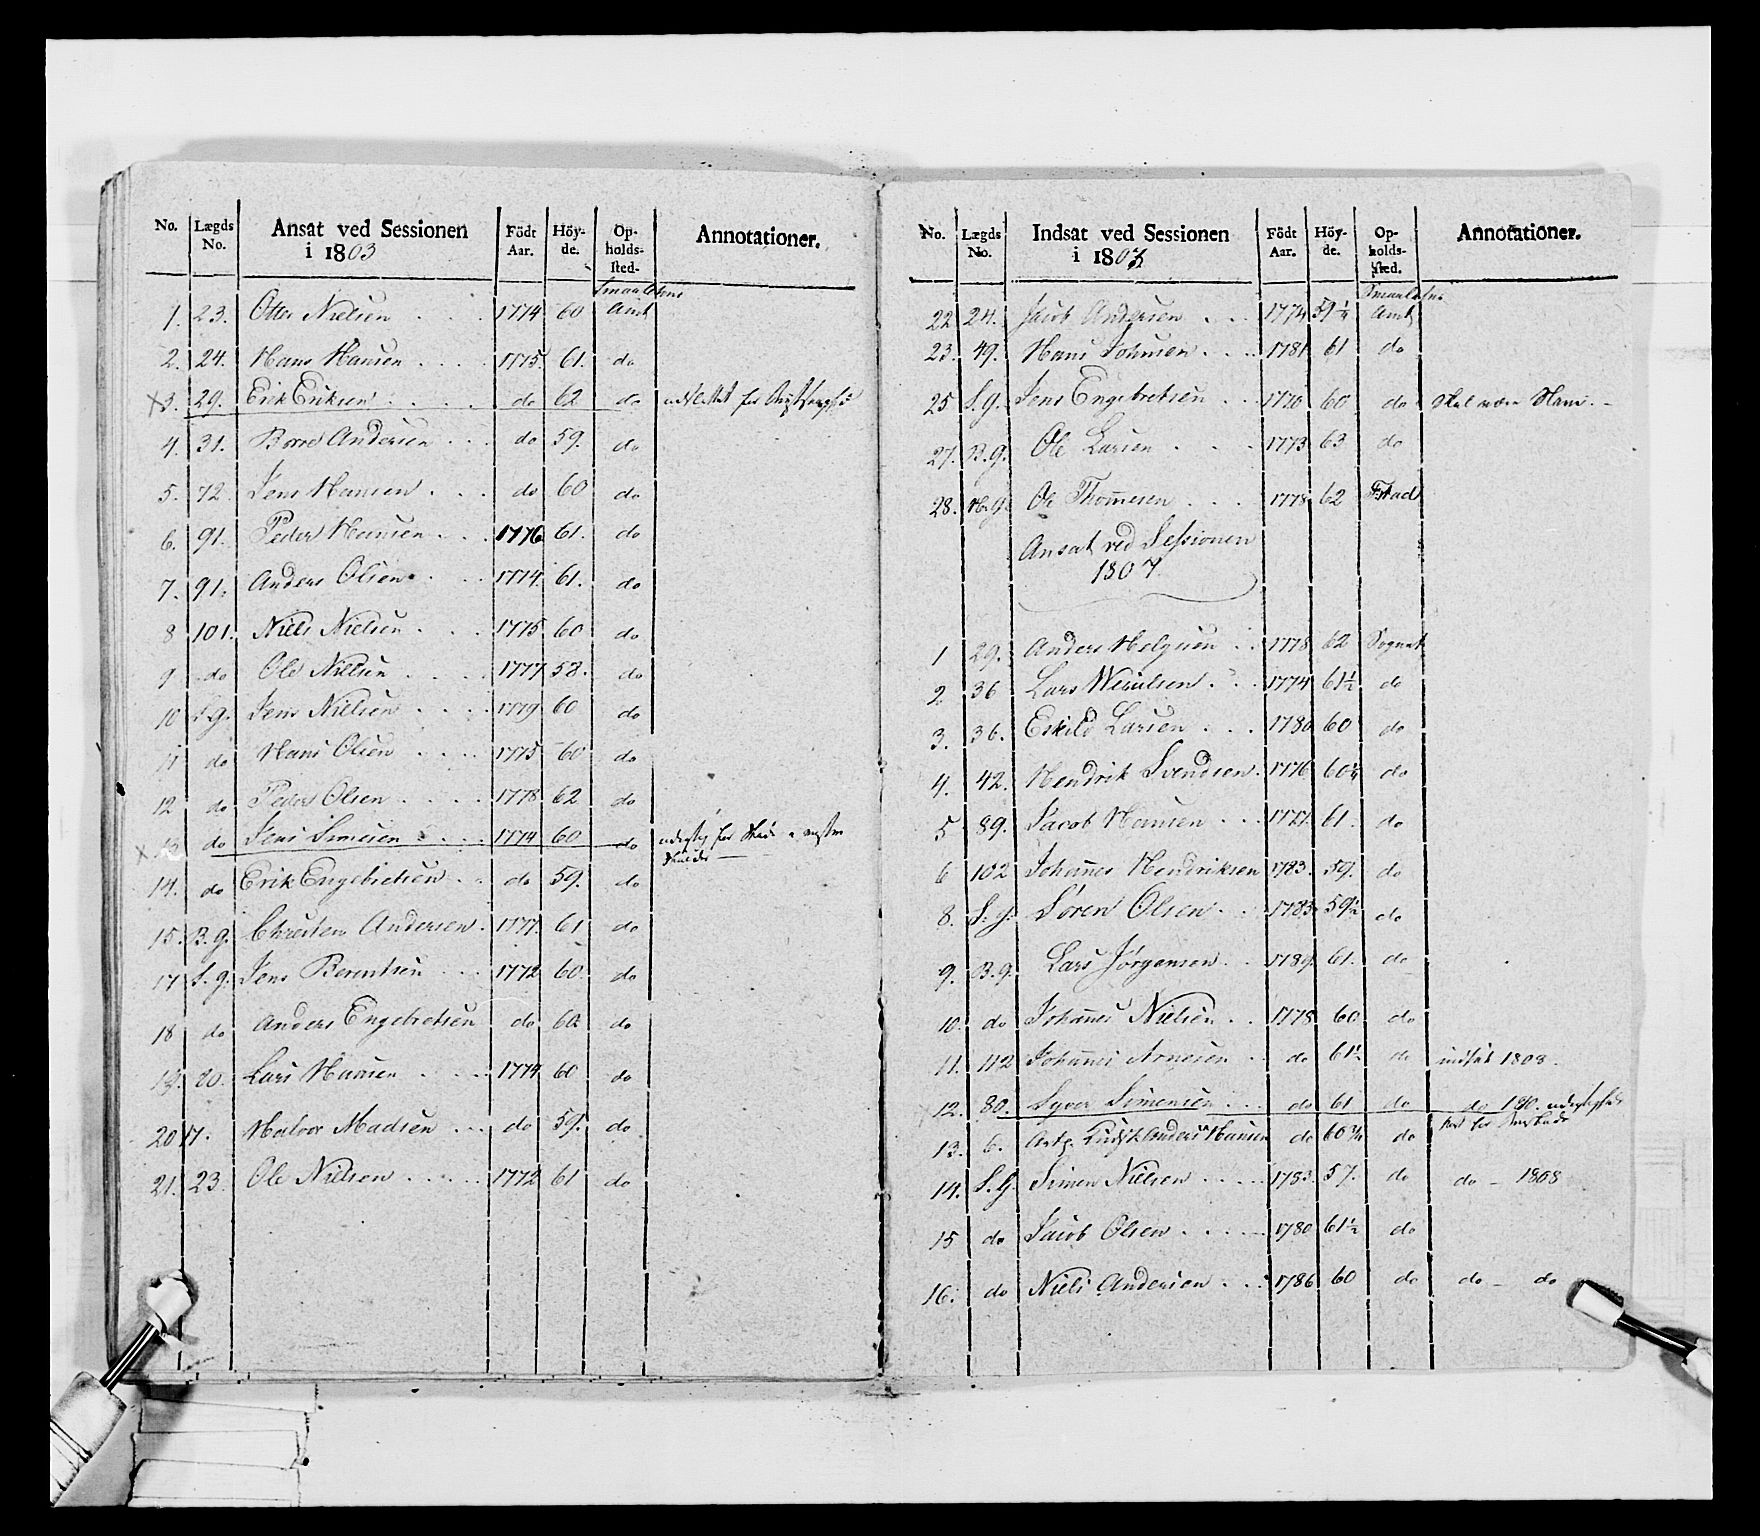 No. Lægds No. Ansat ved Sessionen i 1803 Födt Aar. Höyde. Opholdssted. Annotationer.
1. 23. Otter Nielsen 1774 60 Smaalehns Amt
2. 24. Hans Hansen 1775. 61. do
x3. 29. Erik Eriksen do 62 do udslettet for
4. 31. Borre Andersen do 59. do
5. 72. Jens Hansen do 60 do
6. 91. Peder Hansen 1776 61. do
7. 91. Anders Olsen 1774. 61. do
8 101. Niels Nielsen 1775 60 do
9 do Ole Nielsen 1777 58. do
10 S.g. Jens Nielsen 1779 60 do
11 do Hans Olsen 1775 60 do
12 do Peder Olsen 1778 62 do
x 13 do Jens Simesen 1774 60 do
14. do Erik Engebretsen do 59. do
15. B.g. Christen Andersen 1777. 61 do
17 S.g. Jens Berentsen 1772 60. do
18 do Anders Engebretsen do 60 do
19. 20. Lars Hansen 1774 60 do
20 17. Halvor Madsen do 59. do
21. 23. Ole Nielsen 1772 61 do
No. Lægds No. Indsat ved Sessionen i 1803 Födt Aar. Höyde. Opholdssted. Annotationer.
22 24. Jacob Andersen 1774 59 1/4 Smaalehns Amt
23. 49. Hans Johnsen 1781 61 do
25 S.g. Jens Engebretsen 1770 60 do Skal være Hans.
27. B.g. Ole Larsen 1773 63 do
28. H.g. Ole Thommesen 1778 62 Fstad
Ansat ved Sessionen
1807
1 29. Anders Helgesen 1778 62 Sognet
2 36 Lars 1774 61½ do
3. 36. Eskild Larsen 1780 60 do
4. 42. Hendrik Svendsen 1776 60¼ do
5 89. Jacob Hansen 1777. 61. do
6 102 Johannes Hendriksen 1783. 59. do
8. S.g. Søren Olsen 1785 59½ do
9. B.g. Lars Jørgensen 1789. 61. do
10. do Johannes Nielsen 1778 60 do
11. 112 Johannes Arnesen do 61½ do indsat 1808.
12. 80. Syver Simensen do 61 do do
13. 6. Anders Hansen do 60 3/4 do
14. S.g. Simen Nielsen 1783 57. do do – 1808
15 do Jacob Olsen 1780 61½ do
16. do Niels Andersen 1786 60 do do – do